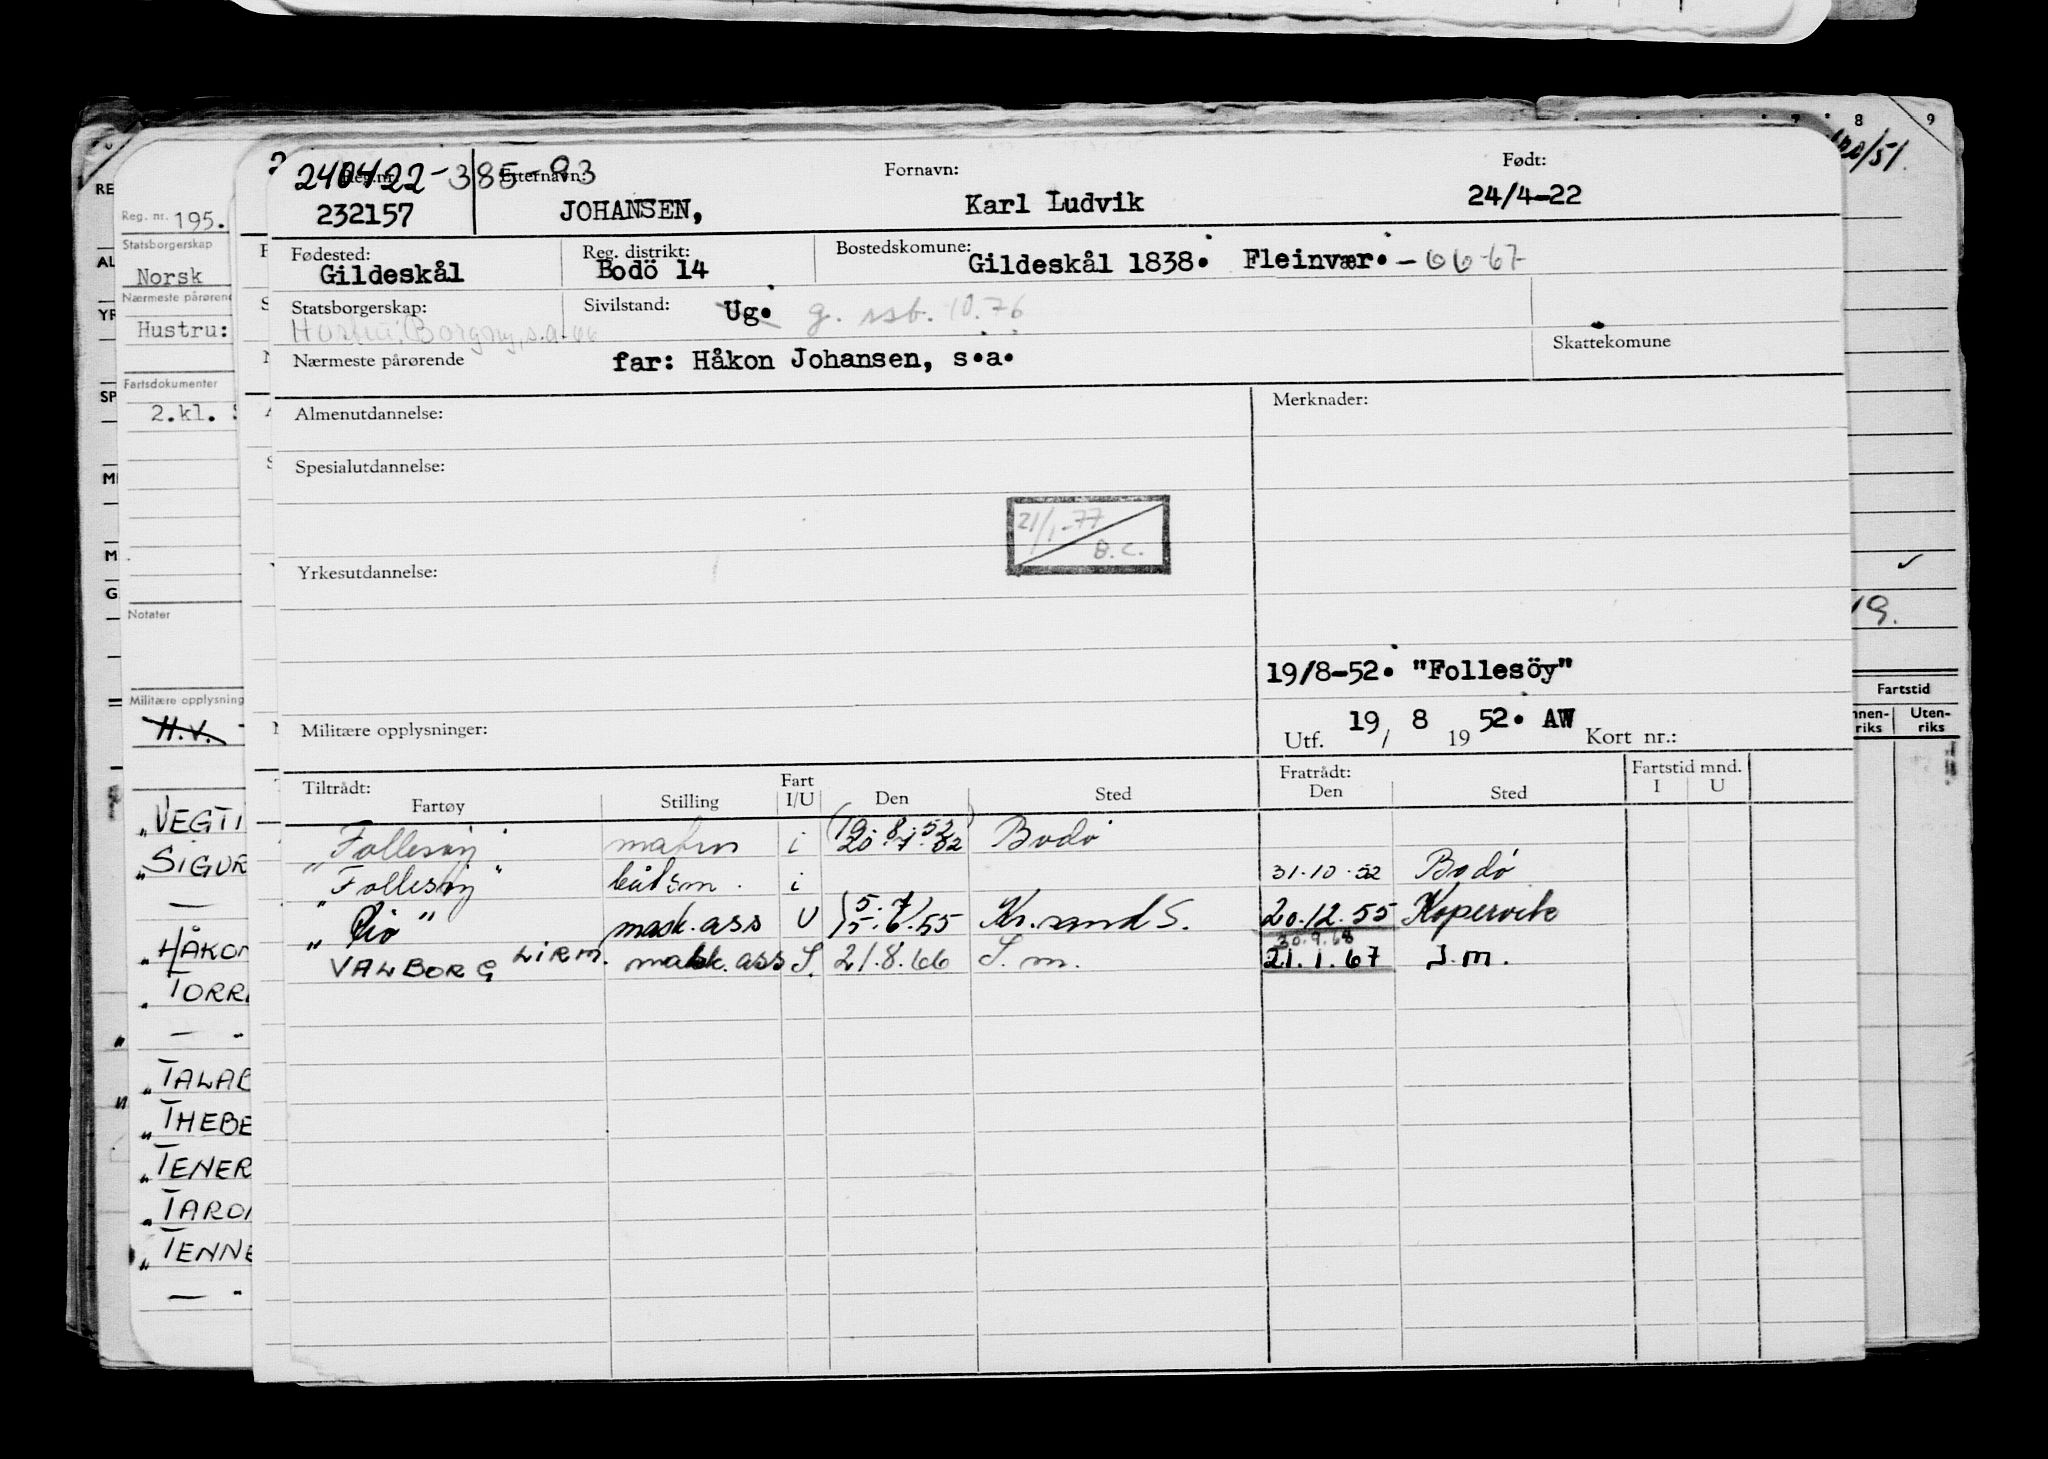 240422-385-93
Reg.nr. Etternavn: Fornavn: Født:
232157 JOHANSEN, Karl Ludvik 24/4-22
Fødested: Reg. distrikt: Bostedskomune:
Gildeskål Bodö 14 Gildeskål 1838. Fleinvær. - 66-67
Statsborgerskap: Sivilstand: Ug. g. ssb. 10.76
Hustru: Borgny, s.a. 66
Nærmeste pårørende far: Håkon Johansen, s.a. Skattekomune
Almenutdannelse: Merknader:
Spesialutdannelse:
21/1-77
B.C.
Yrkesutdannelse:
19/8-52. "Follesöy"
Militære opplysninger: Utf. 19 / 8 19 52. AW Kort nr.:
Tiltrådt: Fart Fratrådt: Fartstid mnd.
Fartøy Stilling I/U Den Sted Den Sted I U
(19.8.52)
"Follesøy" matrs i 20.7.52 Bodø
"Follesøy" båtsm. i 31.10.52 Bodø
(5.7)
"Rio" mask.ass U 15.6.55 Kr.sand S. 20.12.55 Kopervik
30.9.68
VALBORG LIRM. mask.ass S. 21.8.66 S.m. 21.1.67 S.m.
Reg. nr. 195.
Statsborgerskap
Norsk
Nærmeste pårørende
Hustru:
Fartsdokumenter
2.kl.
Notater
Militære opplysning
H.V.
"VEGTI
"SIGUR
"HÅKON
"TORR
"TALAB
"THEBE
"TENER
"TARO
"TENNE
RE
AL
YR
SP
M
M
G
7 8 9
/51.
19.
Fartstid
Innen-riks Uten-riks